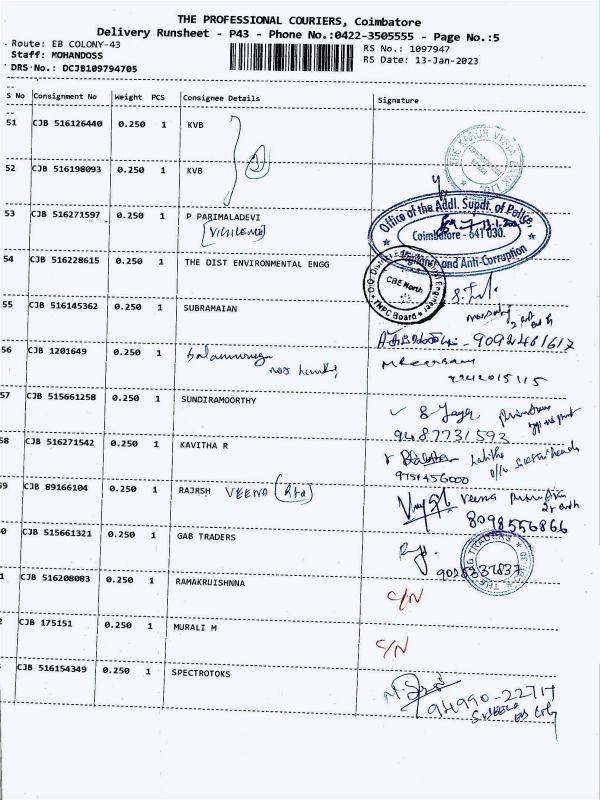 THE PROFESSIONAL COURIERS, Coimbatore
Delivery Runsheet - P43 - Phone No.:0422-3505555 - Page No.:5
Route: EB COLONY-43
RS No.: 1097947
Staff: MOHANDOSS
RS Date: 13-Jan-2023
DRS No.: DCJB109794705
S No Consignment No Weight PCS Consignee Details Signature
51 CJB 516126440 0.250 1 KVB
THE KARUR VYSYA BANK LTD
52 CJB 516198093 0.250 1 KVB
53 CJB 516271597 0.250 1 P PARIMALADEVI
(VIGILENCE)
Office of the Addl. Supdt. of Police,
Coimbatore - 641 030.
Vigilance and Anti-Corruption
54 CJB 516228615 0.250 1 THE DIST ENVIRONMENTAL ENGG
CBE North
TNPC Board
55 CJB 516145362 0.250 1 SUBRAMAIAN
9092461617
56 CJB 1201649 0.250 1
9942015115
57 CJB 515661258 0.250 1 SUNDIRAMOORTHY
9487731593
58 CJB 516271542 0.250 1 KAVITHA R
Lalitha
9751456000
59 CJB 89166104 0.250 1 RAJRSH VEENA (Rtd)
Veena
8098556866
0 CJB 515661321 0.250 1 GAB TRADERS
1 CJB 516208083 0.250 1 RAMAKRUISHNNA
C/N
CJB 175151 0.250 1 MURALI M
C/N
CJB 516154349 0.250 1 SPECTROTOKS
94990-22717